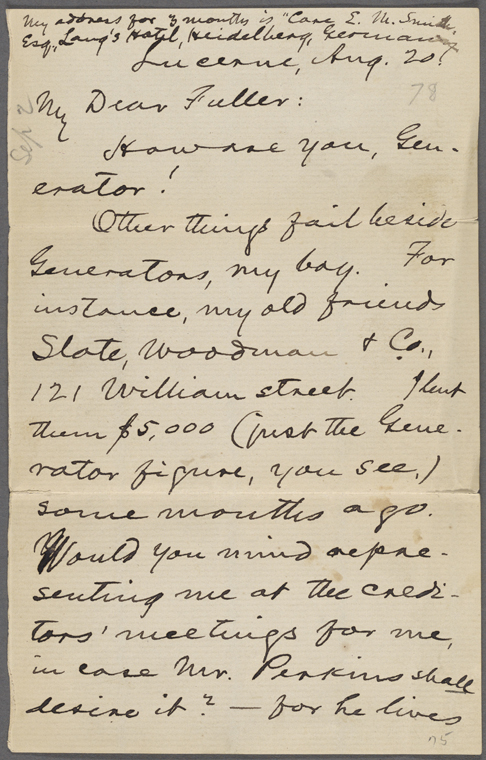 My address for 3 months is "Care E. M. Smith,
Esq., Lang's Hotel, Heidelberg, Germany
Lucerne, Aug. 20.
78
Sep 2
My Dear Fuller:
How are you, Gen-
erator!
Other things fail beside
Generators, my boy. For
instance, my old friends
Slote, Woodman & Co.,
121 William street. I lent
them $5,000 (just the Gene-
rator figure, you see,)
some months ago.
Would you mind repre-
senting me at the credi-
tors' meetings for me,
in case Mr. Perkins shall
desire it? — for he lives
75